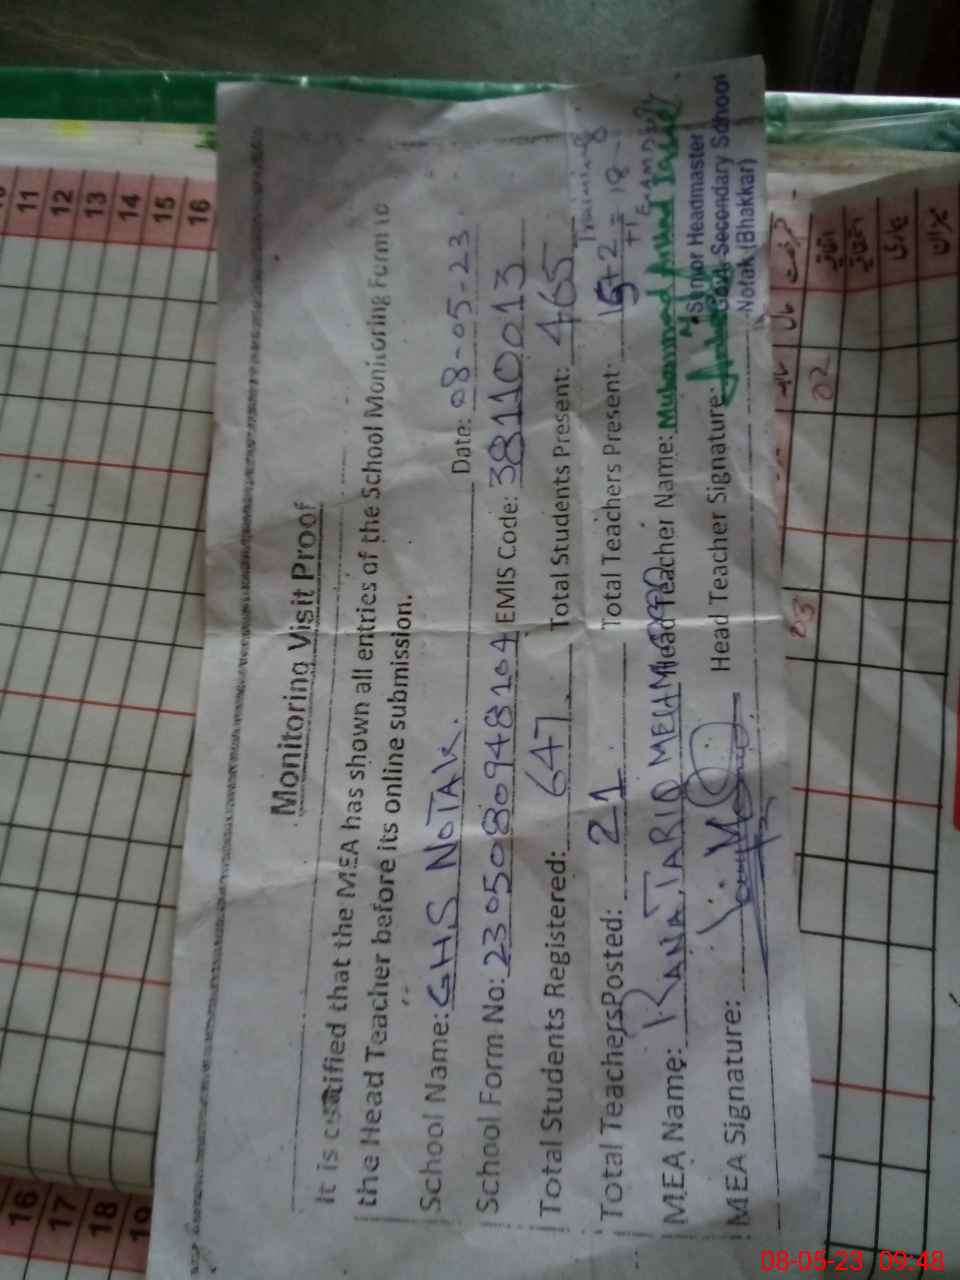 Monitoring Visit Proof
It is certified that the MEA has shown all entries of the School Monitoring Form to
the Head Teacher before its online submission.
School Name: GHS NOTAK. Date: 08-05-23
School Form No: 2305080948104 EMIS Code: 38110013
Total Students Registered: 647 Total Students Present: 465
Total Teachers Posted: 21 Total Teachers Present: 15+2 = 18
Training
+1 Exam
MEA Name: RANA TARIQ MEHMOOD Head Teacher Name: Muhammad Arshad
MEA Signature: Head Teacher Signature:
Senior Headmaster
Govt. Secondary School
Notak (Bhakkar)
11
12
13
14
15
16
16
17
18
19
02
03
08-05-23 09:48